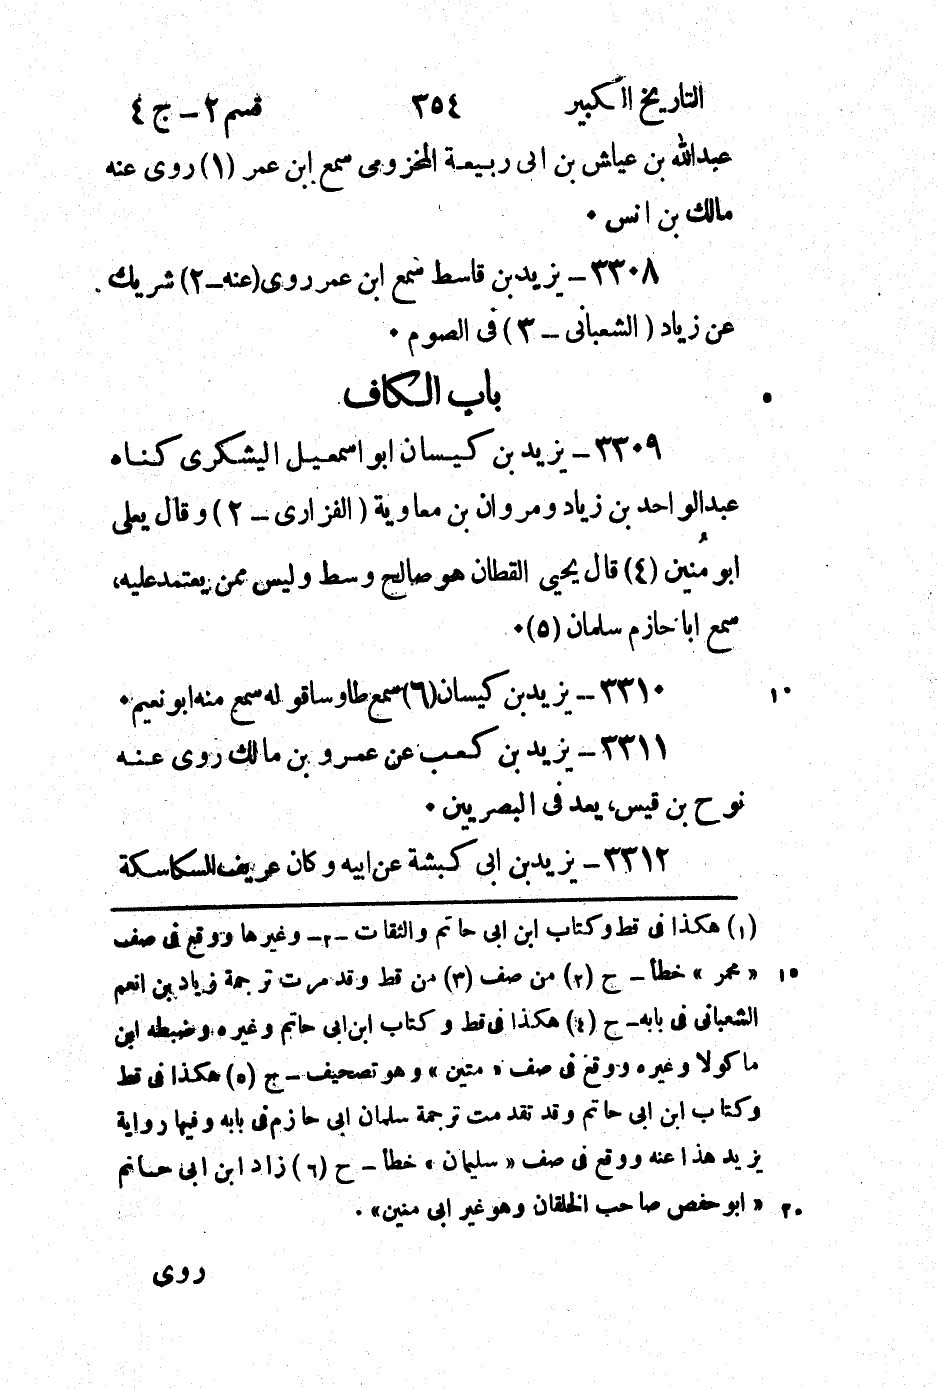 التاريخ الكبير ٣٥٤ قسم ٢ – ج ٤
عبدالله بن عياش بن ابى ربيعة المخزومى سمع ابن عمر (١) روى عنه
مالك بن انس ٠
٣٣٠٨ – يزيد بن قاسط سمع ابن عمر روى (عنه – ٢) شريك
عن زياد ( الشعبانى – ٣ ) فى الصوم ٠
باب الكاف
٣٣٠٩ – يزيد بن كيسان ابو اسمعيل اليشكرى كناه
عبدالواحد بن زياد ومروان بن معاوية ( الفزارى – ٢ ) وقال يعلى
ابو مُنين (٤) قال يحيى القطان هو صالح وسط وليس ممن يعتمد عليه،
سمع ابا حازم سلمان (٥) ٠
٣٣١٠ – يزيد بن كيسان (٦) سمع طاوسا قوله سمع منه ابو نعيم ٠ ١٠
٣٣١١ – يزيد بن كعب عن عمرو بن مالك روى عنه
نوح بن قيس، يعد فى البصريين ٠
٣٣١٢ – يزيد بن ابى كبشة عن ابيه وكان عريف السكاسكة
(١) هكذا فى قط وكتاب ابن ابى حاتم والثقات – ٢ – وغيرها ووقع فى صف
« معمر » خطأ – ح (٢) من صف (٣) من قط وقد مرت ترجمة زياد بن انعم ١٥
الشعبانى فى بابه – ح (٤) هكذا فى قط و كتاب ابن ابى حاتم وغيره وضبطه ابن
ماكولا وغيره ووقع فى صف « متين » وهو تصحيف – ح (٥) هكذا فى قط
وكتاب ابن ابى حاتم وقد تقدمت ترجمة سلمان ابى حازم فى بابه وفيها رواية
يزيد هذا عنه ووقع فى صف « سليمان » خطأ – ح (٦) زاد ابن ابى حاتم
« ابو حفص صاحب الخلقان وهو غير ابى منين » . ٢٠
روى